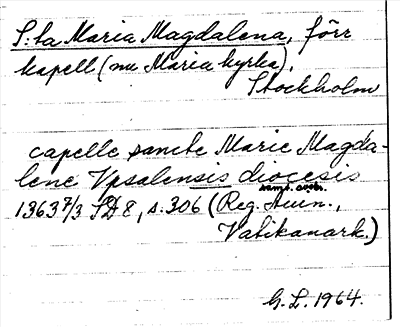 S:ta Maria Magdalena, förr
kapell (nu Maria kyrka),
Stockholm
capelle sancte Marie Magda-
lene Vpsalensis diocesis
1363 7/3 SD 8, s. 306 (Reg.
Vatikanark.)
G. L. 1964.